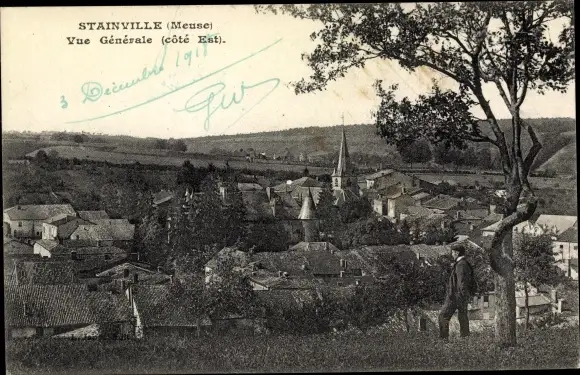 STAINVILLE (Meuse)
Vue Générale (côté Est).
3 Décembre 1918